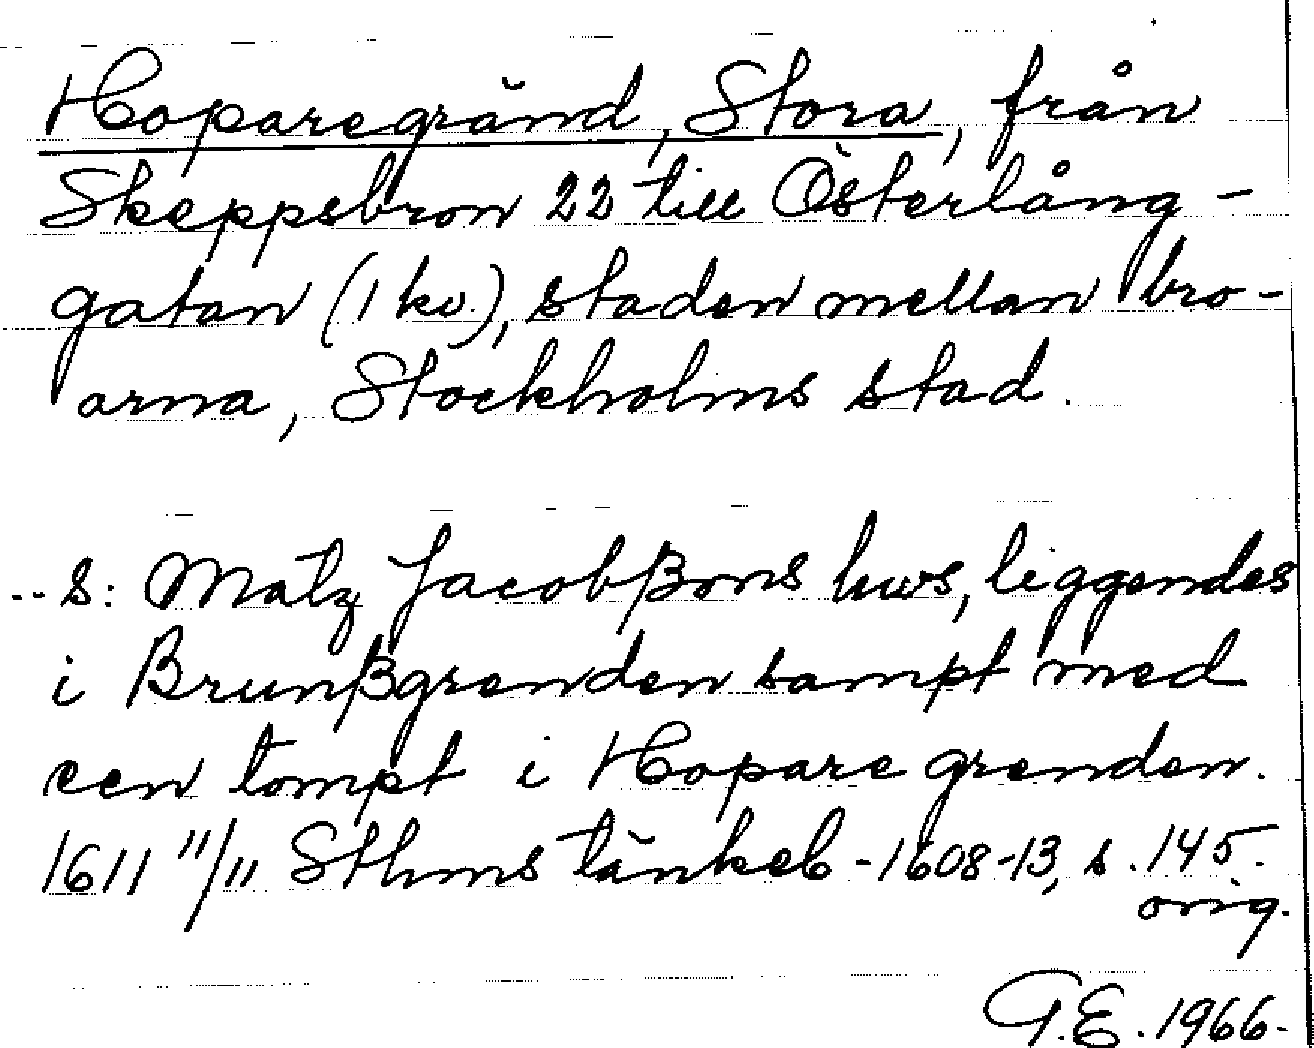 Hoparegränd, Stora, från
Skeppsbron 22 till Österlång-
gatan (1 kv.), staden mellan bro-
arna, Stockholms stad.
-- s: Matz Jacobßons hws, liggendes
i Brunßgrenden sampt med
een tompt i Hopare grenden.
1611 11/11 Sthms tänkeb -1608-13, s. 145.
orig.
G.E. 1966.